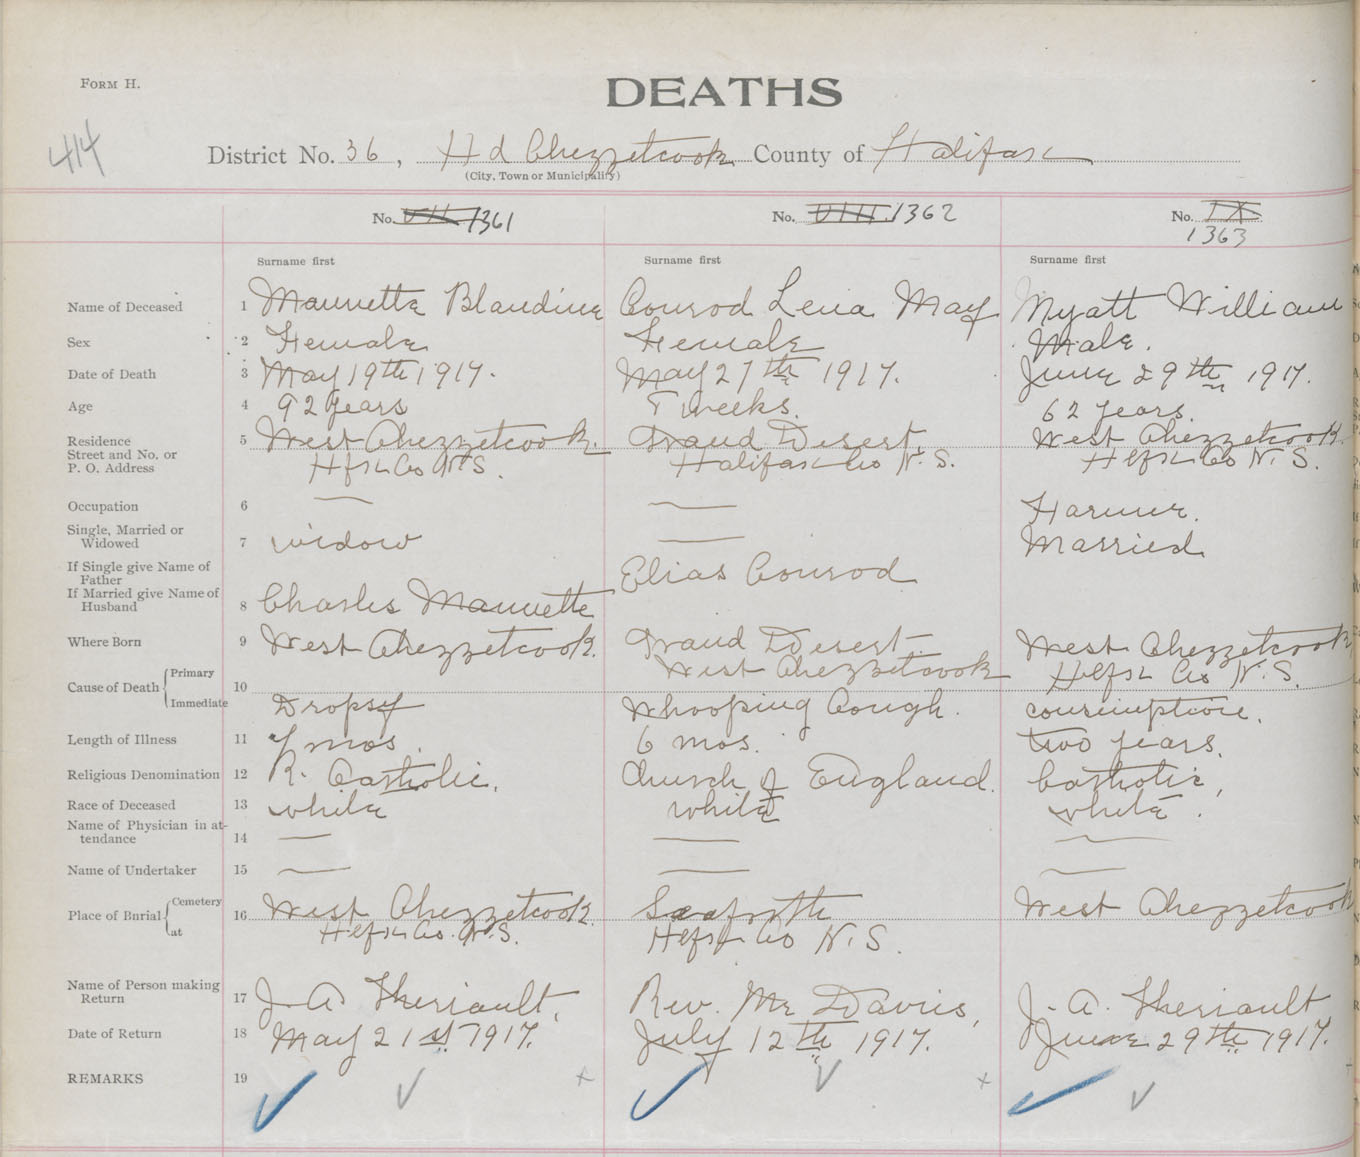 FORM H.
DEATHS
414
District No. 36, Hd Chezzetcook County of Halifax
(City, Town or Municipality)
No. VII 1361 No. VIII. 1362 No. IX
1363
Surname first Surname first Surname first
Name of Deceased 1 Mannette Blandine Conrod Lena May Myatt William
Sex 2 Female Female Male.
Date of Death 3 May 19th 1917. May 27th 1917. June 29th 1917.
Age 4 92 years weeks. 62 years.
Residence 5 West Chezzetcook. Grand Desert West Chezzetcook
Street and No. or
P. O. Address Hfx Co N.S. Halifax Co N.S. Hlfx Co N.S.
Occupation 6 — — Farmer.
Single, Married or
Widowed 7 widow — Married
If Single give Name of
Father Elias Conrod
If Married give Name of
Husband 8 Charles Mannette
Where Born 9 West Chezzetcook. Grand Desert West Chezzetcook
West Chezzetcook Hlfx Co N.S.
Cause of Death { Primary 10
Immediate Dropsy Whooping Cough. consumption.
Length of Illness 11 7 mos. 6 mos. two years.
Religious Denomination 12 R. Catholic. Church of England. Catholic,
Race of Deceased 13 white white white.
Name of Physician in at-
tendance 14 — — —
Name of Undertaker 15 — — —
Place of Burial { Cemetery 16 West Chezzetcook. Seaforth West Chezzetcook
at Hlfx Co. N.S. Hlfx Co N.S.
Name of Person making
Return 17 J. A. Theriault, Rev. Mr Davis, J. A. Theriault
Date of Return 18 May 21st 1917. July 12th 1917. June 29th 1917.
REMARKS 19